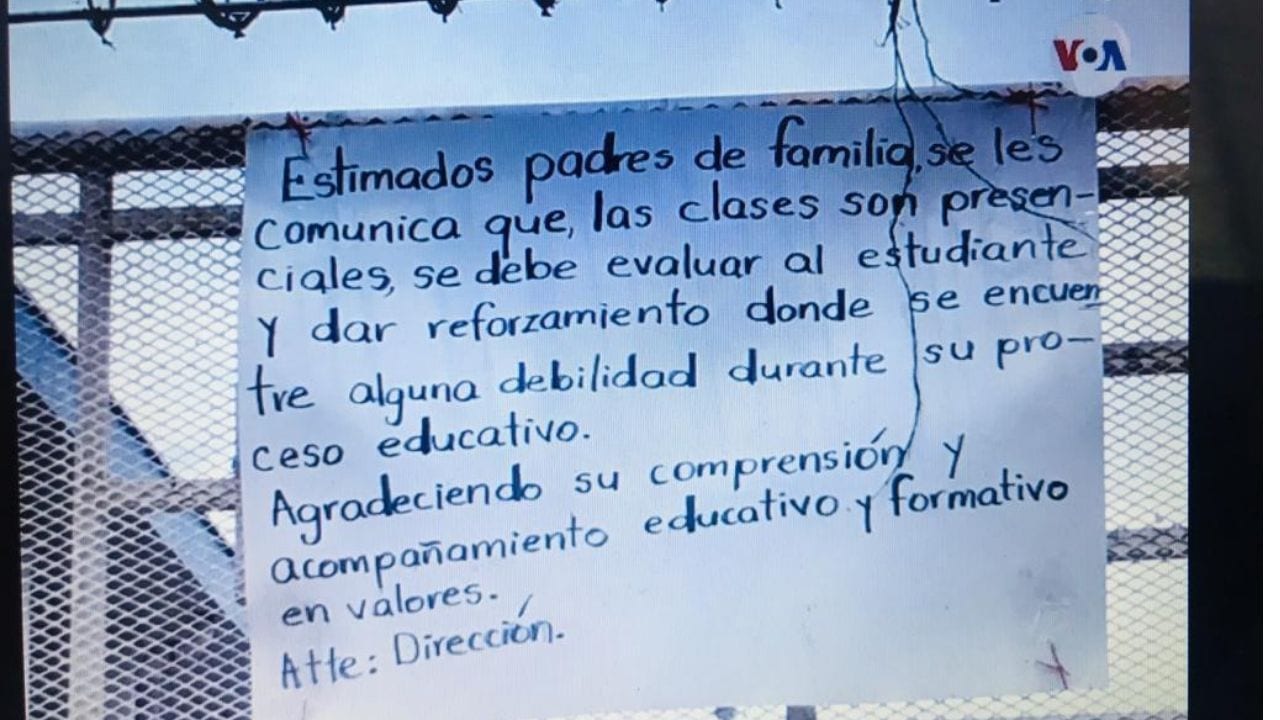 VOA
Estimados padres de familia, se les
comunica que, las clases son presen-
ciales, se debe evaluar al estudiante
y dar reforzamiento donde se encuen
tre alguna debilidad durante su pro-
ceso educativo.
Agradeciendo su comprensión y
acompañamiento educativo y formativo
en valores.
Atte: Dirección.